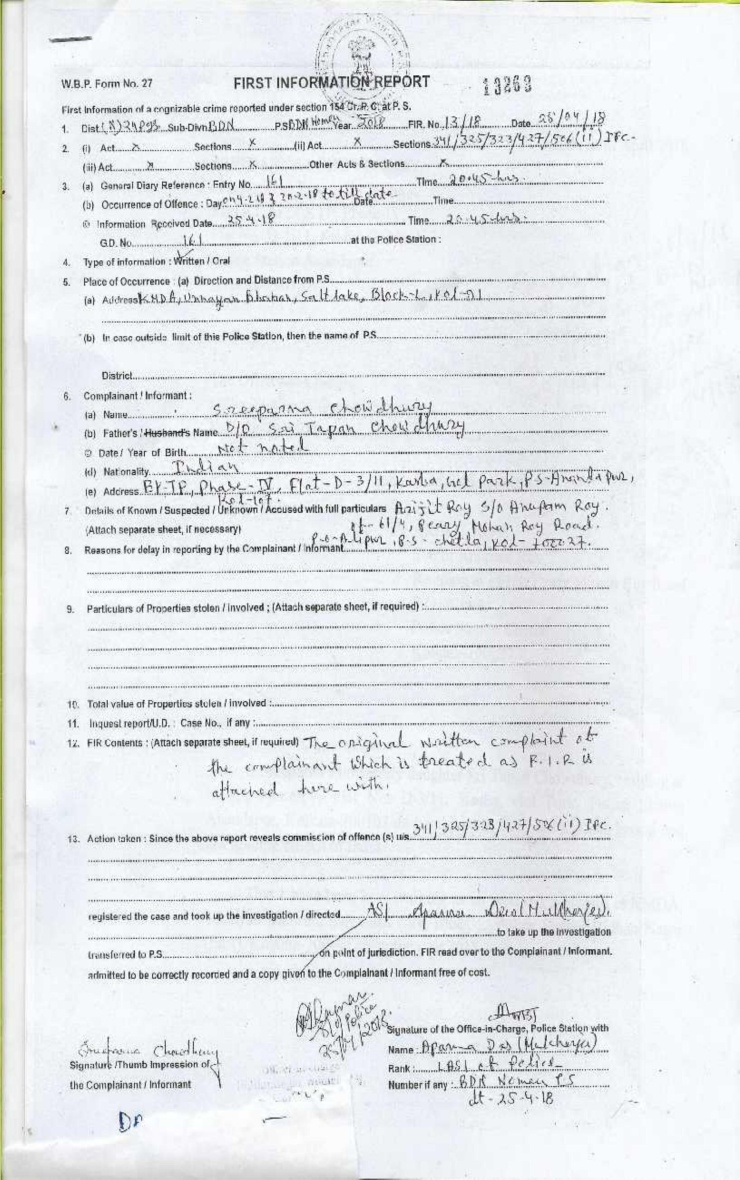 W.B.P. Form No. 27
FIRST INFORMATION REPORT
13263
First Information of a cognizable crime reported under section 154 Cr. P. C. at P. S.
1. Dist (N) 24 Pgs Sub-Divn BDN P.S BDN Women Year 2018 FIR. No. 13/18 Date 25/04/18
2. (i) Act X Sections X (ii) Act X Sections 341/325/323/427/506(ii) IPC.
(iii) Act X Sections X Other Acts & Sections X
3. (a) General Diary Reference : Entry No. 161 Time 20.45 hrs.
(b) Occurrence of Offence : Day on 9-2-18 & 20-2-18 to till date Date Time
© Information Received Date 25.4.18 Time 20.45 hrs.
G.D. No. 161 at the Police Station :
4. Type of information : Written / Oral
5. Place of Occurrence : (a) Direction and Distance from P.S.
(a) Address KMDA, Unnayan Bhaban, Salt lake, Block-L, Kol-91
(b) In case outside limit of this Police Station, then the name of P.S.
District
6. Complainant / Informant :
(a) Name Sreeparna Chowdhury
(b) Father's / Husband's Name D/O Sri Tapan Chowdhury
© Date / Year of Birth Not noted
(d) Nationality Indian
(e) Address Phase-IV, Flat-D-3/11, Kasba, Park, P.S-Anandapur,
Kol-107.
7. Details of Known / Suspected / Unknown / Accused with full particulars Arijit Roy S/O Anupam Roy.
(Attach separate sheet, if necessary) of- 61/4, Peary Mohan Roy Road.
P.O-Alipur, P.S- Chetla, Kol- 700027.
8. Reasons for delay in reporting by the Complainant / Informant
9. Particulars of Properties stolen / involved ; (Attach separate sheet, if required) :
10. Total value of Properties stolen / involved :
11. Inquest report/U.D. : Case No., if any :
12. FIR Contents : (Attach separate sheet, if required) The original written complaint of
the complainant which is treated as F.I.R is
attached here with.
13. Action taken : Since the above report reveals commission of offence (s) u/s. 341/325/323/427/506(ii) IPC.
registered the case and took up the investigation / directed ASI Aparna Das (Mukherjee).
to take up the investigation
transferred to P.S. on point of jurisdiction. FIR read over to the Complainant / Informant.
admitted to be correctly recorded and a copy given to the Complainant / Informant free of cost.
SI of Police
25/04/2018
Signature of the Office-in-Charge, Police Station with
Sreeparna Chowdhury
Name : Aparna Das (Mukherjee)
Signature /Thumb Impression of
Rank : LASI of Police
the Complainant / Informant
Number if any : BDN Women PS
dt - 25-4-18